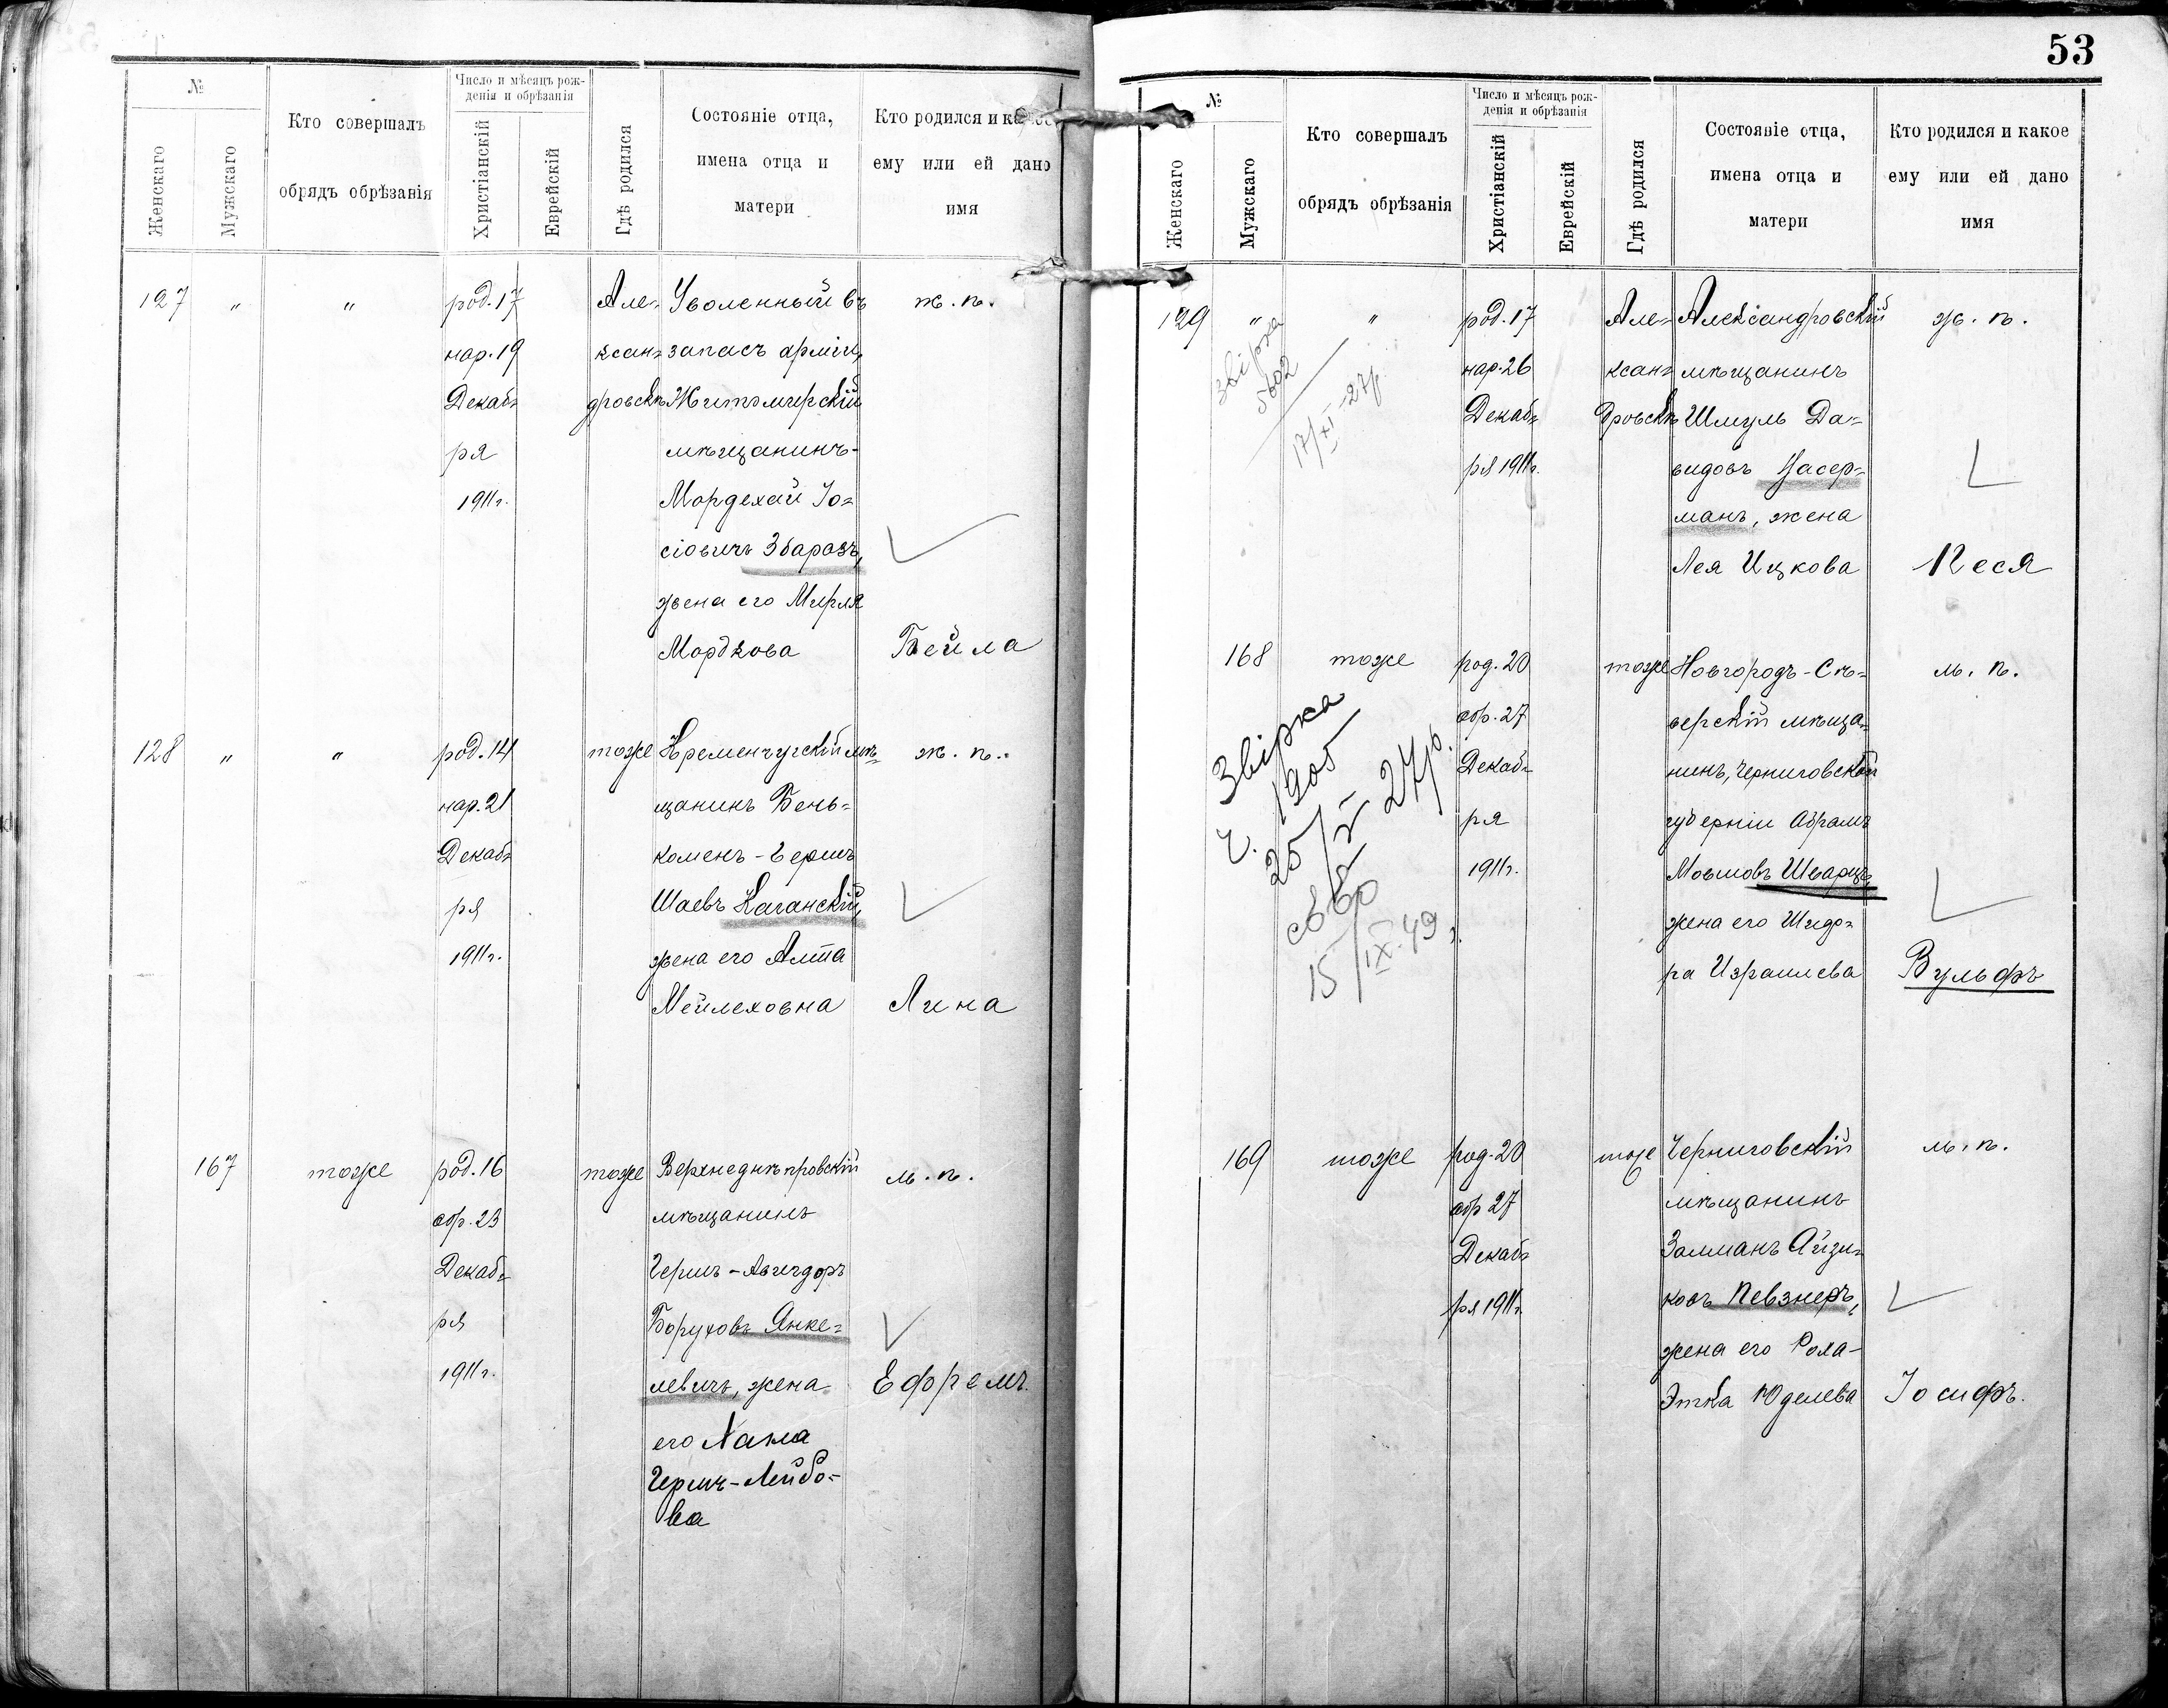 №
Женскаго
Мужскаго
Кто совершалъ
обрядъ обрѣзанія
Число и мѣсяцъ рож-
денія и обрѣзанія
Христіанскій
Еврейскій
Гдѣ родился
Состояніе отца,
имена отца и
матери
Кто родился и
ему или ей дано
имя
127 " "
род. 17
нар. 19
Декаб=
ря
1911г.
Але=
ксан=
дровскѣ
Уволенный въ
запасъ арміи,
Житомирскій
мѣщанинъ-
Мордехай Іо=
сіовичъ Збаразъ,
жена его Мирля
Мордкова
ж. п.
Бейла
128 " "
род. 14
нар. 21
Декаб=
ря
1911г.
тоже
Кременчугскій мѣ=
щанинъ Бень=
коменъ-Гершъ
Шаевъ Каганскій,
жена его Алта
Мейлеховна
ж. п.
Лина
167
тоже
род. 16
обр. 23
Декаб=
ря
1911г.
тоже
Верхнеднѣпровскій
мѣщанинъ
Гершъ-Авигдоръ
Боруховъ Янке=
левичъ, жена
его Хана
Гершъ-Лейбо-
ва
м. п.
Ефремъ.
53
№
Женскаго
Мужскаго
Кто совершалъ
обрядъ обрѣзанія
Число и мѣсяцъ рож-
денія и обрѣзанія
Христіанскій
Еврейскій
Гдѣ родился
Состояніе отца,
имена отца и
матери
Кто родился и какое
ему или ей дано
имя
129 " "
звірка
5602
17/XI-27р.
род. 17
нар. 26
Декаб=
ря 1911г.
Але=
ксан=
дровскѣ
Александровскій
мѣщанинъ
Шмуль Да=
видовъ Насер=
манъ, жена
Лея Ицкова
ж. п.
Песя
168
тоже
Звірка
ч. 1905
25/X 27р.
св
15/IX.49
род. 20
обр. 27
Декаб=
ря
1911г.
тоже
Новгородъ-Сѣ=
верскій мѣща=
нинъ, Черниговской
губерніи Абрамъ
Мовшовъ Шварцъ,
жена его Шифр=
ра Израилева
м. п.
Вульфъ
169
тоже
род. 20
обр 27
Декаб=
ря 1911г.
тоже
Черниговскій
мѣщанинъ
Залманъ Айзи=
ковъ Певзнеръ,
жена его Роха-
Этка Юделева
м. п.
Іосифъ.